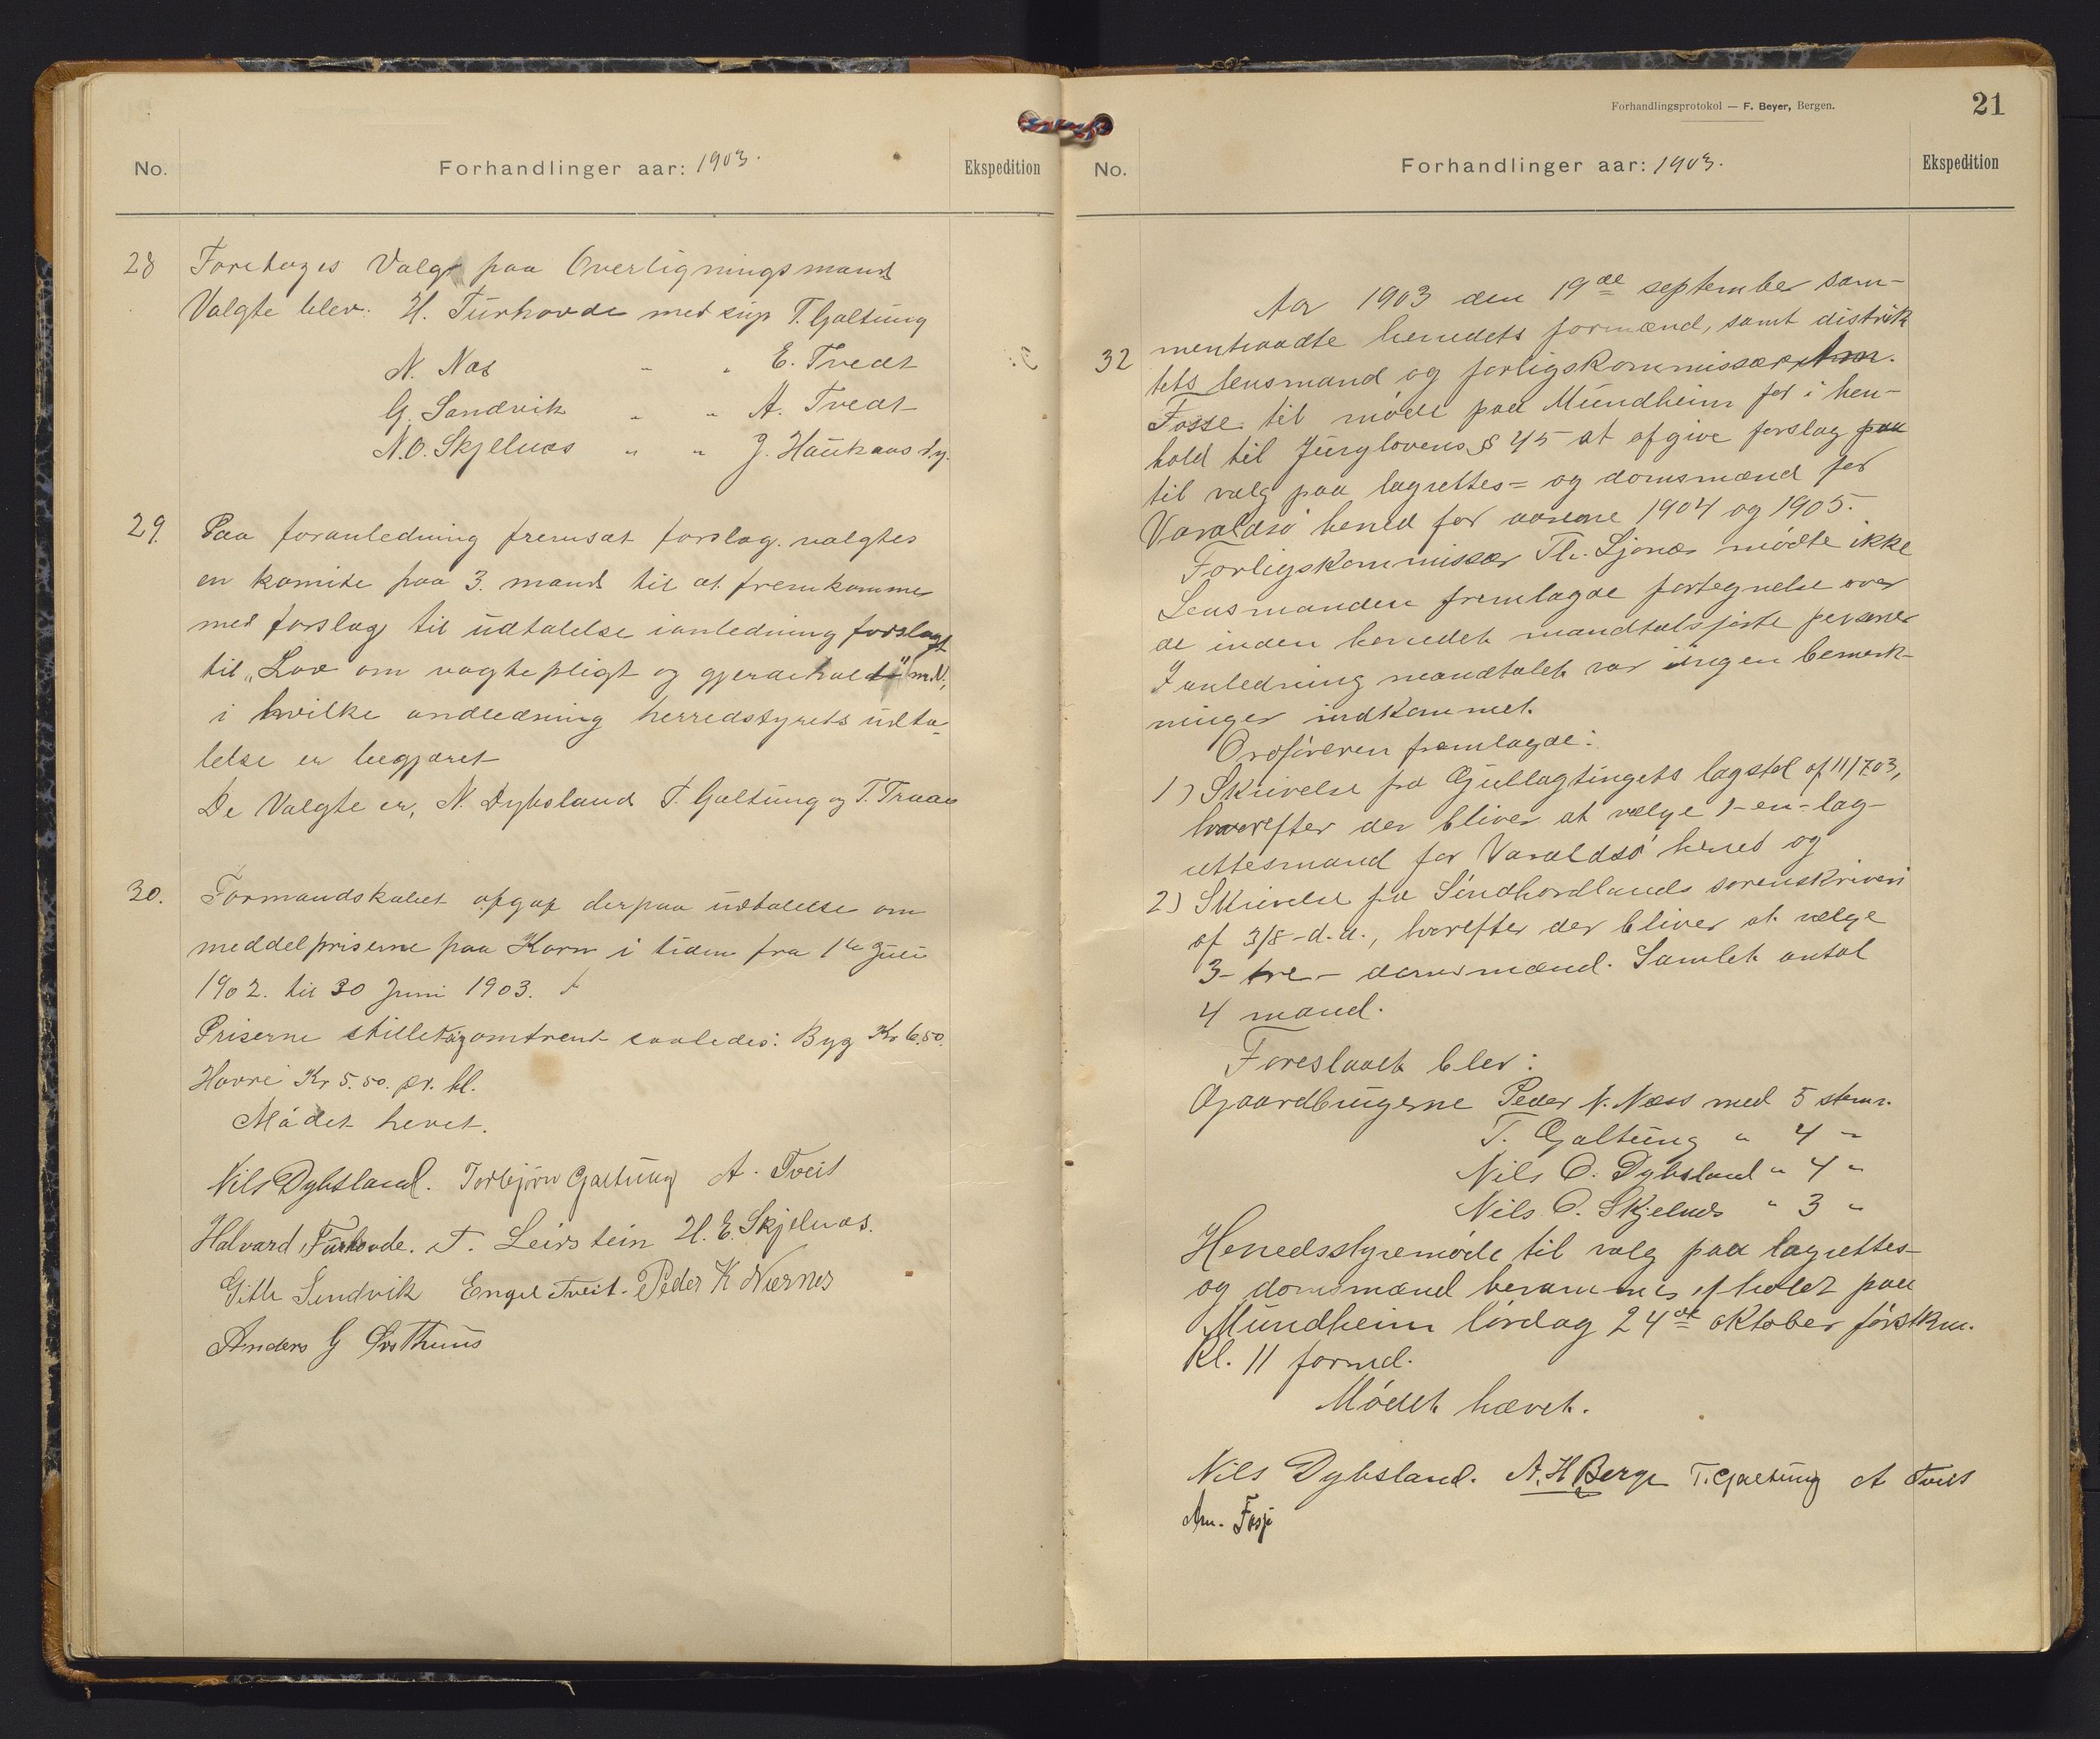 No.
Forhandlinger aar: 1903.
Ekspedition
28 Foretoges Valg paa Overligningsmænd
Valgte blev. H. Turhovde med sup T. Galtung
N. Næs " " E. Tvedt
G. Sandvik " " A. Tvedt
N.O. Skjelnæs " " J. Haukaas
29. Paa foranledning fremsat forslag. valgtes
en komite paa 3. mand til at fremkomme
med forslag til udtalelse ianledning forslaget
til „Lov om vogtepligt og gjerdehold" m.V,
i hvilke andledning herredsstyrets udta-
lelse er begjæret
De Valgte er, N. Dybsland T. Galtung og T. Traae
30. Formandskabet afgav derpaa udtalelse om
meddelpriserne paa Korn i tiden fra 1te Juli
1902. til 30 Juni 1903.
Priserne stillet sig omtrent saaledes: Byg Kr 6.50.
Havre Kr 5.50. pr. hl.
Mødet hevet.
Nils Dybsland. Torbjørn Galtung A. Tveit
Halvard Turhovde. T. Leirstein H. E. Skjelnæs.
Gitle Sendvik Engel Tveit. Peder K Nernes
Anders G Østhuus
Forhandlingsprotokol — F. Beyer, Bergen.
21
No.
Forhandlinger aar: 1903.
Ekspedition
Aar 1903 den 19de september sam-
mentraadte herredets formænd, samt distrik
32 tets lensmand og forligskommissær Am.
Fosse til møde paa Mundheim for i hen-
hold til Jurylovens § 45 at afgive forslag paa
til valg paa lagrettes= og domsmænd for
Varaldsø herred for aarene 1904 og 1905.
Forligskommissær Th. Ljonæs mødte ikke
Lensmanden fremlagde fortegnelse over
de inden herredet mandtalsførte personer
I anledning mandtalet var ingen bemærk-
ninger indkommet.
Ordføreren fremlagde:
1) Skrivelse fra Gullagtingets lagstol af 11/7.03,
hvorefter der bliver at vælge 1-en-lag-
rettesmand for Varaldsø herred og
2) Skrivelse fra Søndhordlands sorenskriveri
af 3/8-d.a., hvorefter der bliver at vælge
3-tre- domsmænd. Samlet antal
4 mand.
Foreslaaet blev:
Gaardbrugerne Peder N. Næss med 5 stem.
T. Galtung " 4 "
Nils O. Dybsland " 4 "
Nils O. Skjelnæs " 3 "
Herredsstyremøde til valg paa lagrettes-
og domsmænd berammes afholdt paa
Mundheim lørdag 24de oktober førstkm.
Kl. 11 formd.
Mødet hævet.
Nils Dybsland. A. H Berge T. Galtung A Tveit
Am. Fosse